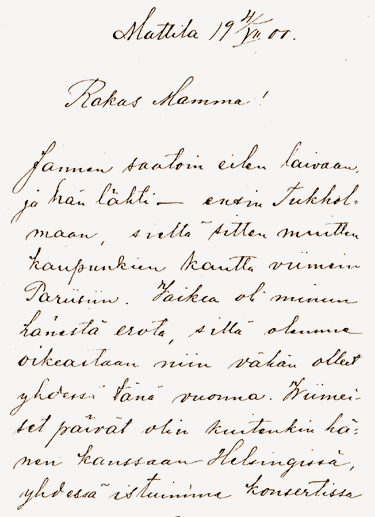 Mattila 19 4/VII 00.
Rakas Mamma!
Jannen saatoin eilen laivaan,
ja hän lähti — ensin Tukhol-
maan, sieltä sitten muitten
kaupunkien kautta viimein
Pariisiin. Vaikea oli minun
hänestä erota, sillä olemme
oikeastaan niin vähän olleet
yhdessä tänä vuonna. Viimei-
set päivät olin kuitenkin hä-
nen kanssaan Helsingissä,
yhdessä istuimme konsertissa